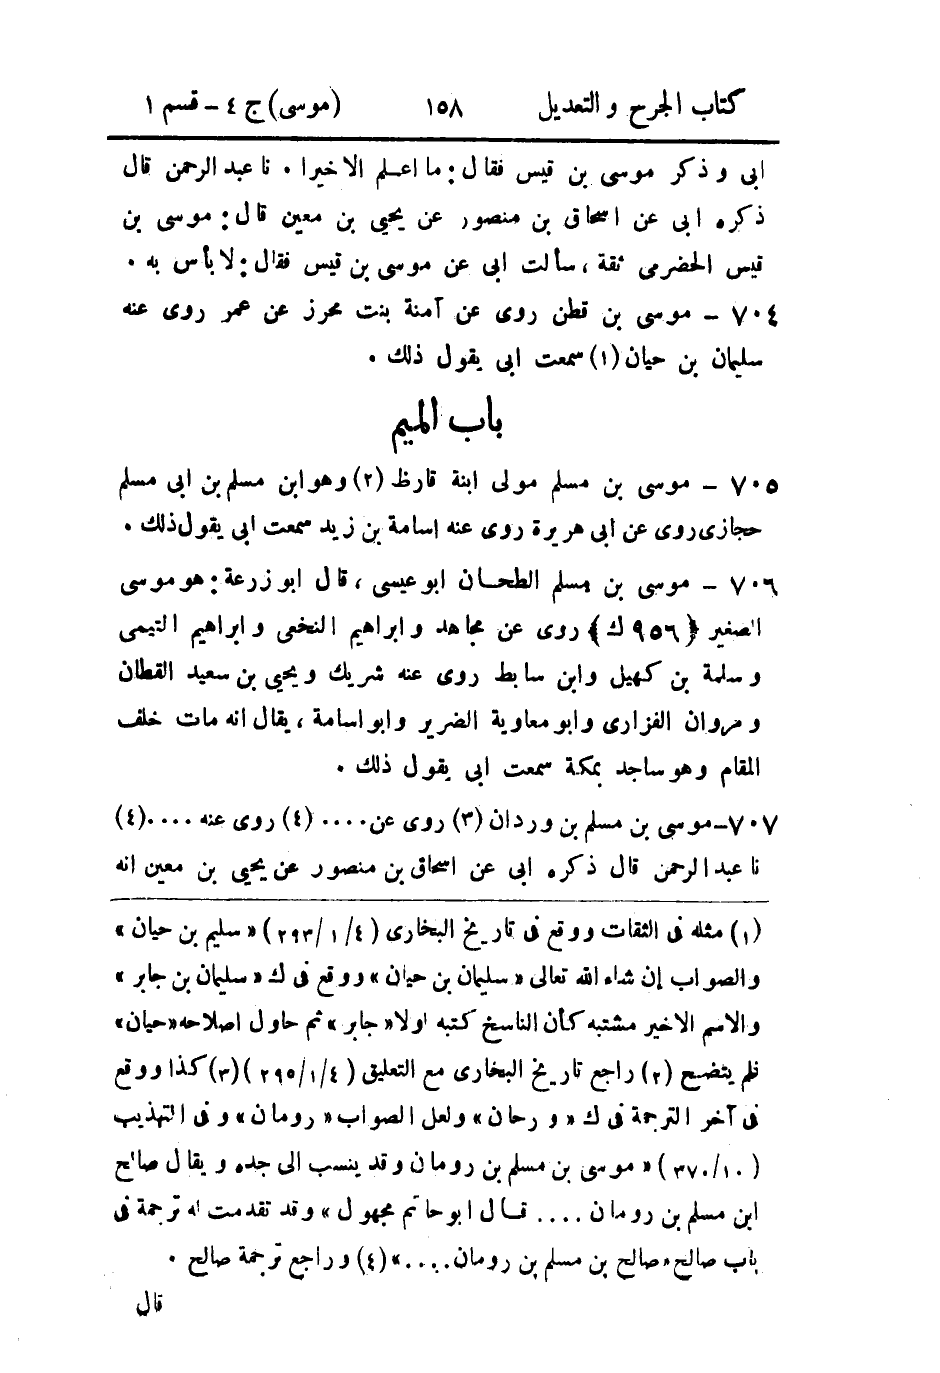 كتاب الجرح والتعديل ١٥٨ (موسى) ج ٤ - قسم ١
ابى وذكر موسى بن قيس فقال: ما اعلم الاخيرا . نا عبد الرحمن قال
ذكره ابى عن اسحاق بن منصور عن يحيى بن معين قال: موسى بن
قيس الحضرمى ثقة ، سألت ابى عن موسى بن قيس فقال: لا بأس به .
٧٠٤ - موسى بن قطن روى عن آمنة بنت محرز عن عمر روى عنه
سليمان بن حيان (١) سمعت ابى يقول ذلك .
باب الميم
٧٠٥ - موسى بن مسلم مولى ابنة قارظ (٢) وهو ابن مسلم بن ابى مسلم
حجازى روى عن ابى هريرة روى عنه اسامة بن زيد سمعت ابى يقول ذلك .
٧٠٦ - موسى بن مسلم الطحان ابو عيسى ، قال ابو زرعة: هو موسى
الصغير ﴿٩٥٦ ك﴾ روى عن مجاهد وابراهيم النخعى وابراهيم التيمى
وسلمة بن كهيل وابن سابط روى عنه شريك ويحيى بن سعيد القطان
ومروان الفزارى وابو معاوية الضرير وابو اسامة ، يقال انه مات خلف
المقام وهو ساجد بمكة سمعت ابى يقول ذلك .
٧٠٧ - موسى بن مسلم بن وردان (٣) روى عن .... (٤) روى عنه .... (٤)
نا عبد الرحمن قال ذكره ابى عن اسحاق بن منصور عن يحيى بن معين انه
(١) مثله فى الثقات ووقع فى تاريخ البخارى (٤ /١ /٢٩٣) « سليم بن حيان »
والصواب إن شاء الله تعالى « سليمان بن حيان » ووقع فى ك « سليمان بن جابر »
والاسم الاخير مشتبه كأن الناسخ كتبه اولا « جابر » ثم حاول اصلاحه «حيان»
فلم يتضح (٢) راجع تاريخ البخارى مع التعليق (٤ /١ /٢٩٥) (٣) كذا ووقع
فى آخر الترجمة فى ك « ورحان » ولعل الصواب « رومان » وفى التهذيب
(١٠ /٣٧٠) « موسى بن مسلم بن رومان وقد ينسب الى جده ويقال صالح
ابن مسلم بن رومان .... قال ابو حاتم مجهول » وقد تقدمت له ترجمة فى
باب صالح « صالح بن مسلم بن رومان .... » (٤) وراجع ترجمة صالح .
قال